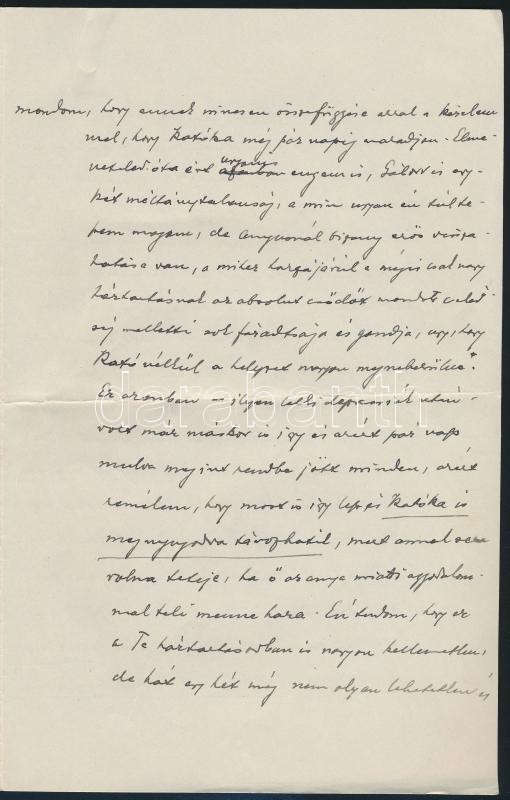 mondom, hogy ennek nincsen összefüggése avval a kérelem
mel, hogy Katóka még pár napig maradjon. Elme-
ért ugyanis engem is, is egy
két méltánytalanság, a min ugyan én túlte-
szem magam, de Anyunál bizony erős vissza-
hatása van, a mihez hozzájárúl a mégis csak nagy
háztartásnál az absolut csődöt mondott cseléd
ség melletti sok fáradtsága és gondja, úgy, hogy
Kató nélkül a helyzet nagyon megnehezülne".
Ez azonban - ilyen lelki depressiók után -
volt már máskor is így és azért pár nap
mulva megint rendbe jött minden, azért
remélem, hogy most is így lesz és Katóka is
megnyugodva távozhatik, mert annak sem
volna teteje, ha ő az anyja miatti aggodalom-
mal teli menne haza. Én tudom, hogy ez
a Te háztartásodban is nagyon kellemetlen,
de hát egy hét még nem olyan lehetetlen és
darabanth